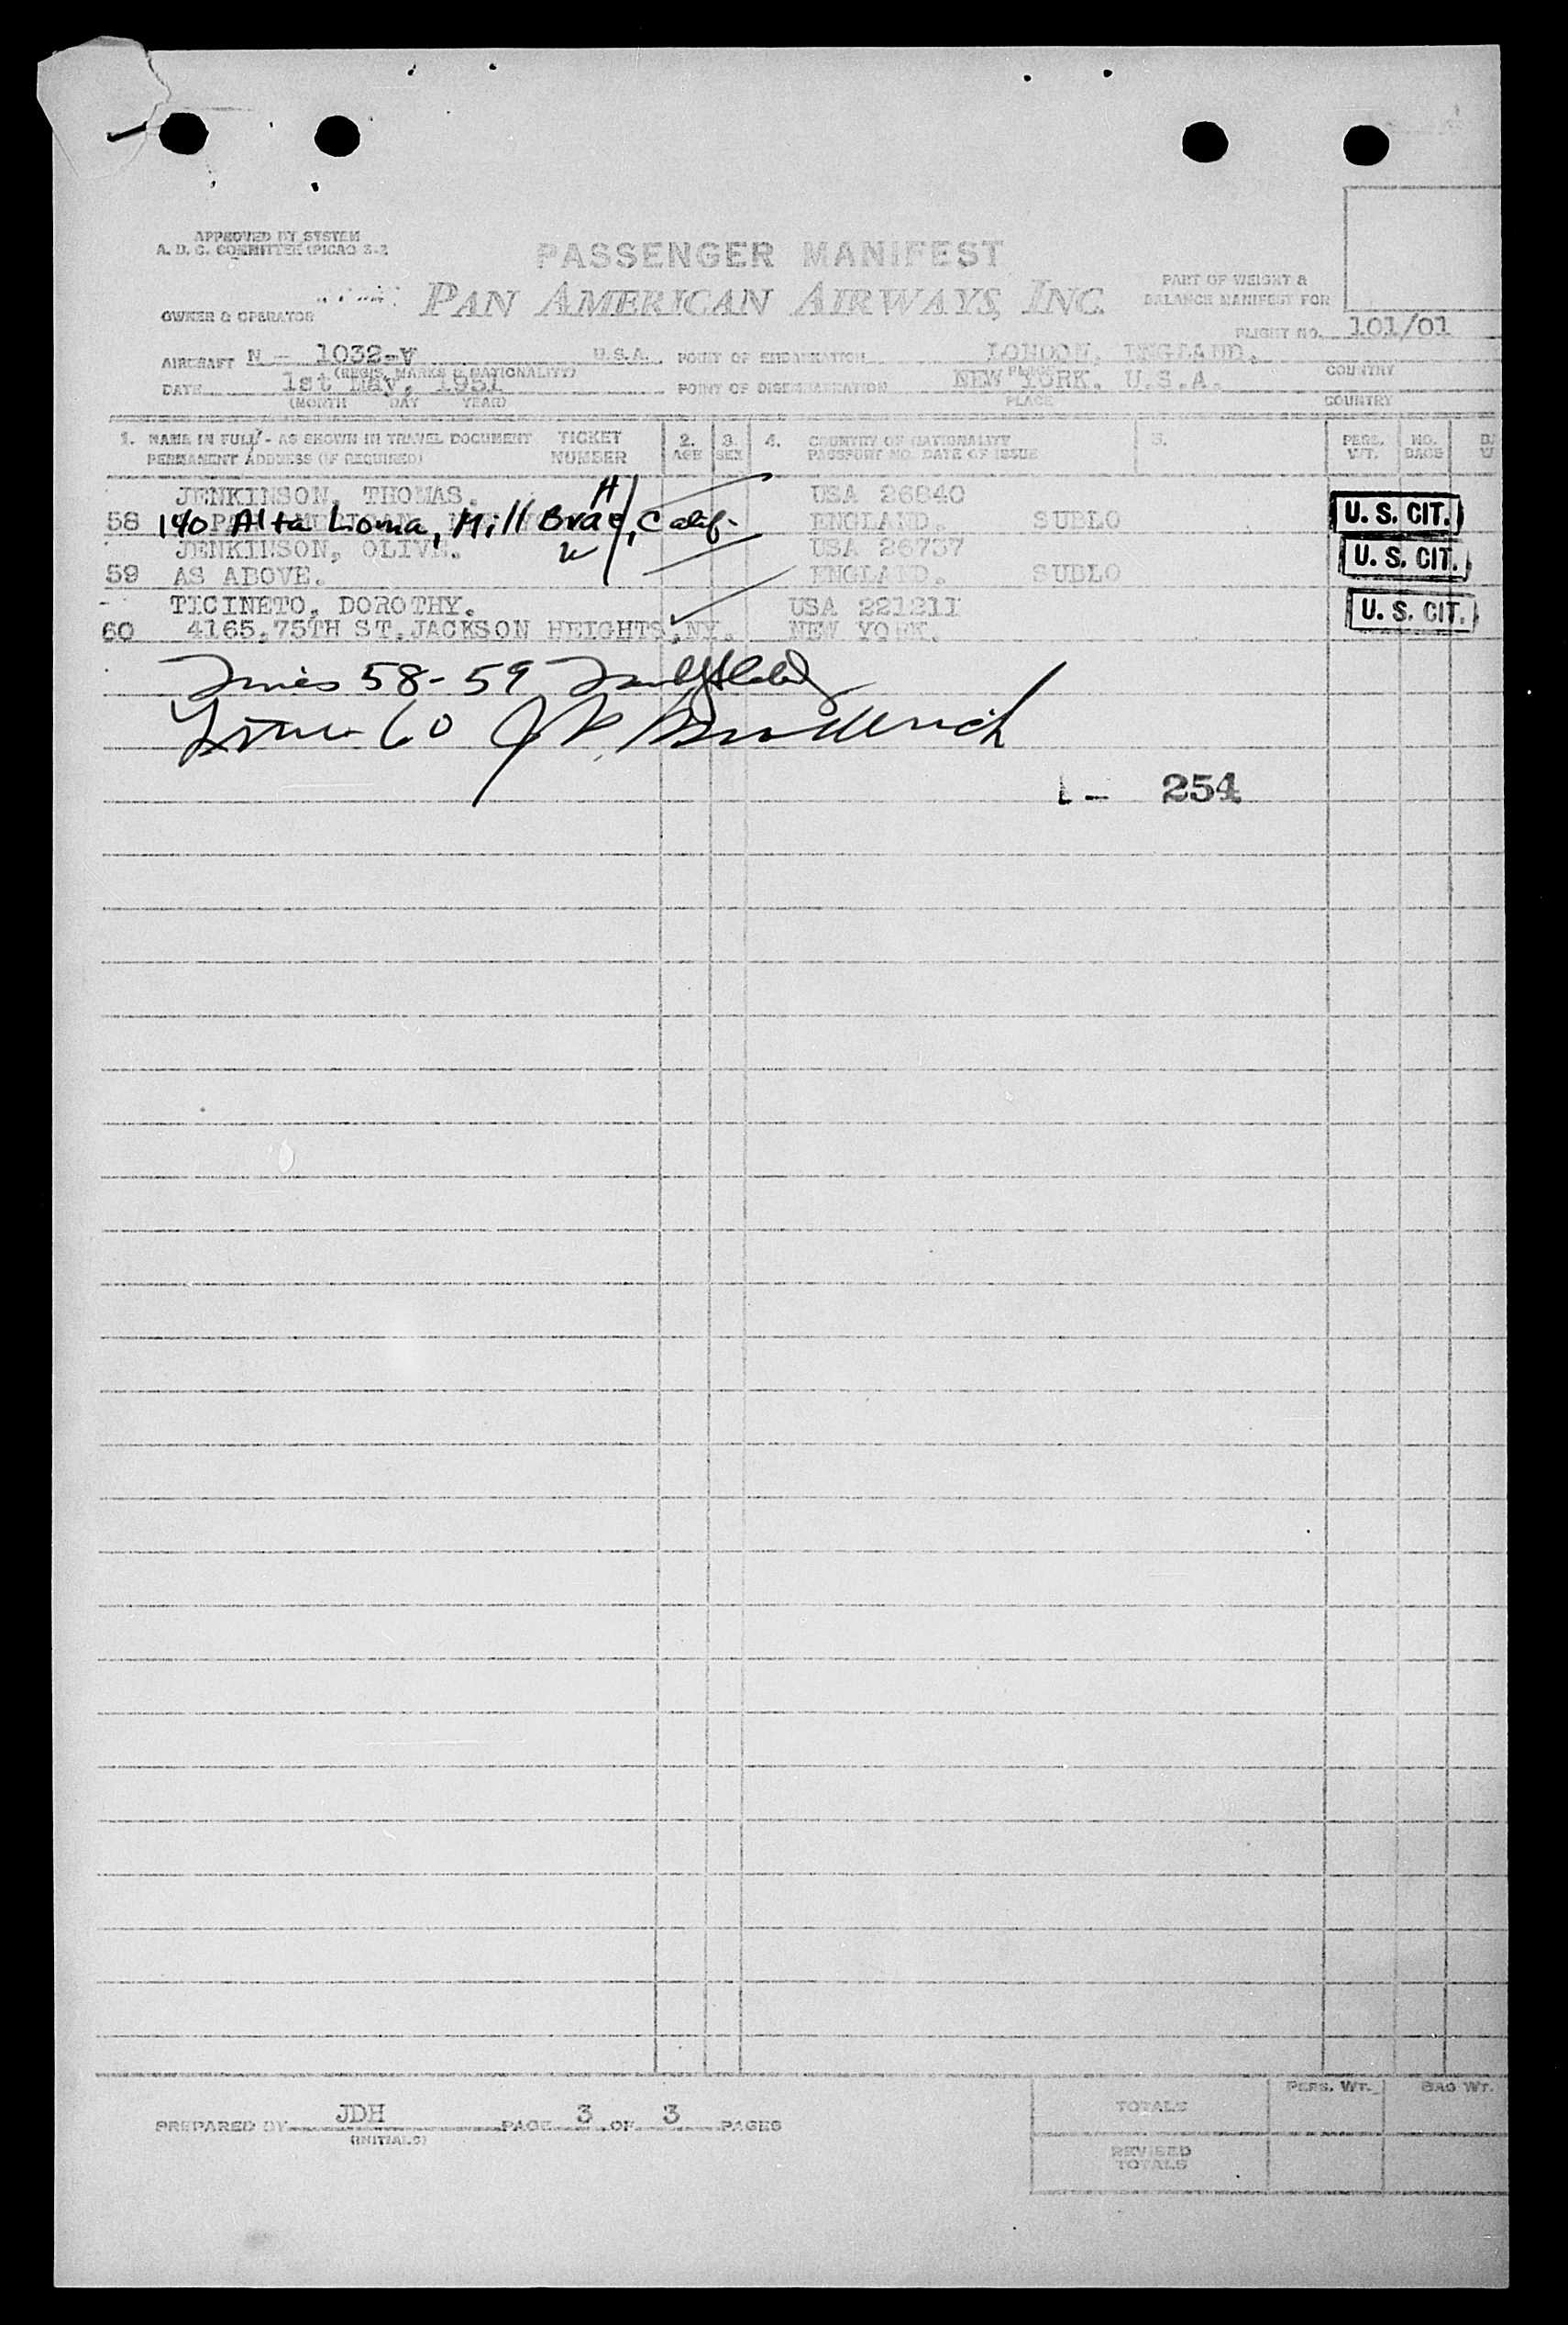 APPROVED BY SYSTEM
A. D. C. COMMITTEE (PICAO 2-2
PASSENGER MANIFEST
PAN AMERICAN AIRWAYS, INC.
PART OF WEIGHT &
BALANCE MANIFEST FOR
OWNER & OPERATOR
FLIGHT NO. 101/01
AIRCRAFT N - 1032-V U.S.A. POINT OF EMBARKATION LONDON, ENGLAND.
(REGIS. MARKS & NATIONALITY) PLACE COUNTRY
DATE 1st May, 1951 POINT OF DISEMBARKATION NEW YORK. U.S.A.
(MONTH DAY YEAR) PLACE COUNTRY
1. NAME IN FULL - AS SHOWN IN TRAVEL DOCUMENT TICKET 2. 3. 4. COUNTRY OF NATIONALITY 5. PERS. NO.
PERMANENT ADDRESS (IF REQUIRED) NUMBER AGE SEX PASSPORT NO. DATE OF ISSUE WT. BAGS
JENKINSON, THOMAS. H USA 26840
58 140 Alta Loma, Mill Brae, Calif. ENGLAND. SUBLO U. S. CIT.
JENKINSON, OLIVE. w USA 26737
59 AS ABOVE. ENGLAND. SUBLO U. S. CIT.
TICINETO, DOROTHY. USA 221211
60 4165.75TH ST.JACKSON HEIGHTS.NY. NEW YORK. U. S. CIT.
58-59
60 J P.
254
PREPARED BY JDH PAGE 3 OF 3 PAGES
(INITIALS)
PERS. WT. BAG WT.
TOTALS
REVISED
TOTALS